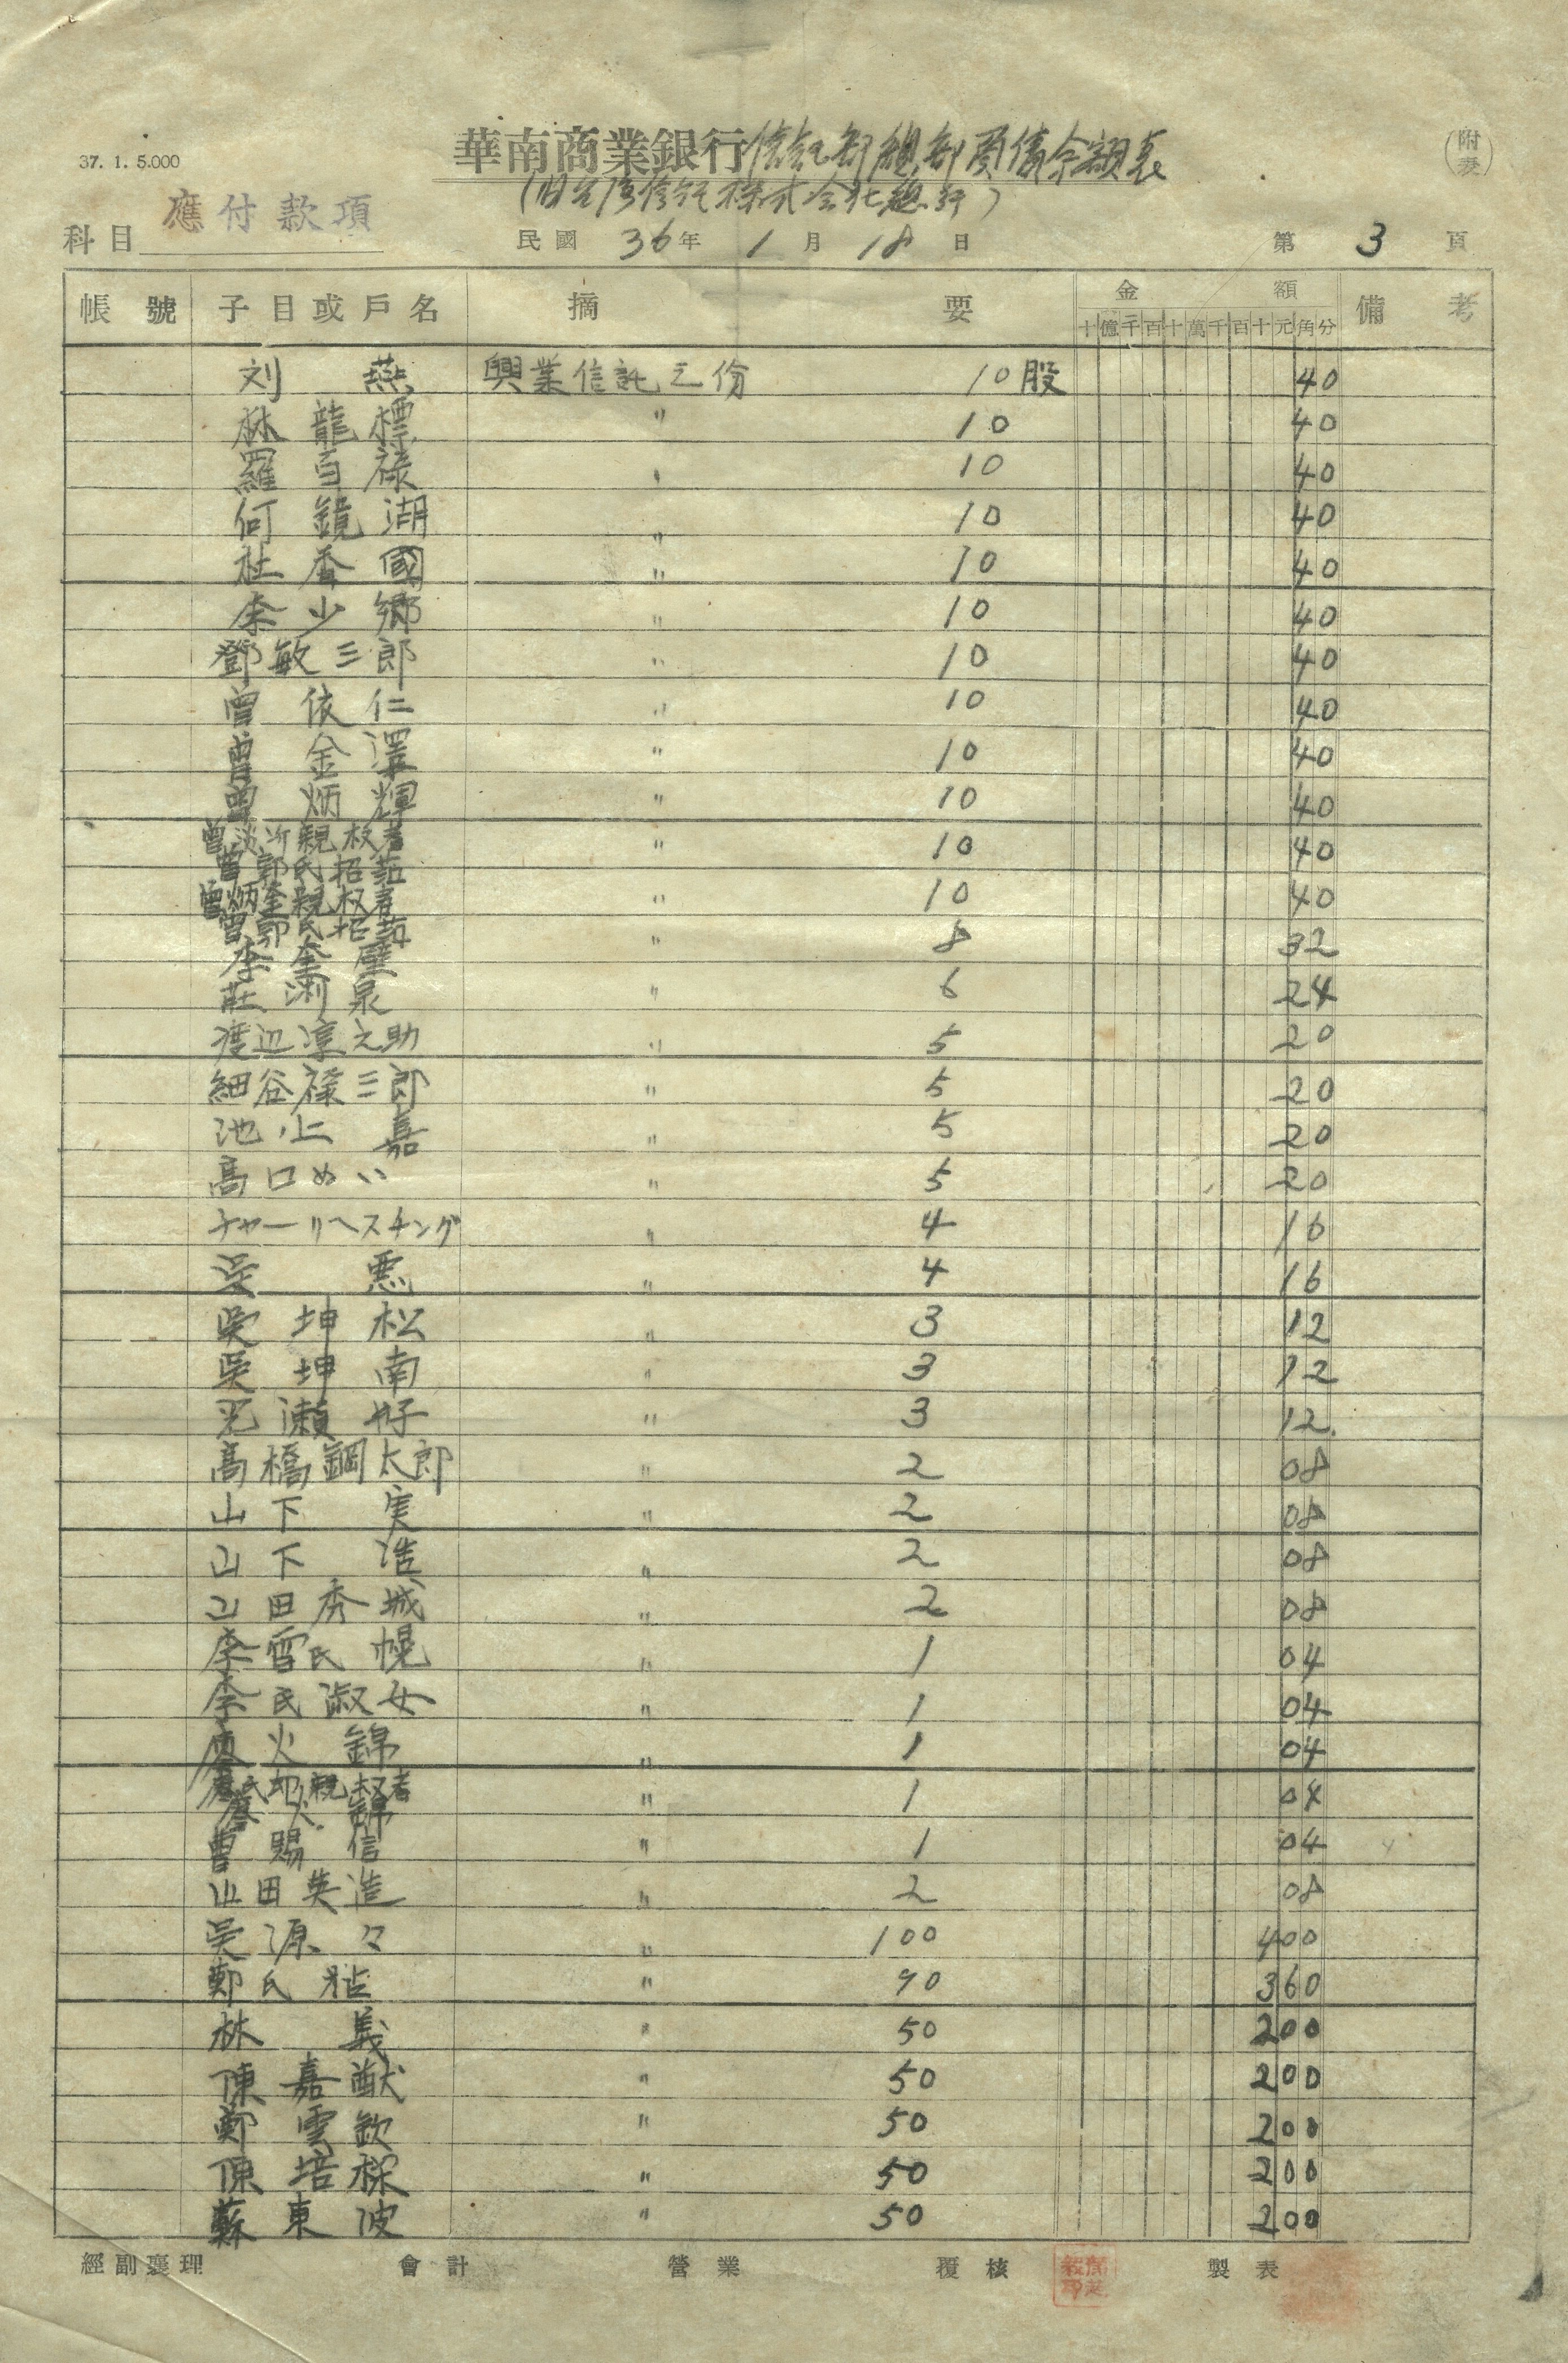 37. 1. 5.000
華南商業銀行信託部總部負債余額表
(附表)
(旧台湾信託株式会社總訳)
科目 應付款項
民國 36年 1月 18日
第 3 頁
帳號 子目或戶名 摘要 金額 備考
十億千百十萬千百十元角分
刘燕 興業信託之份 10股 40
林龍標 〃 10 40
羅百祿 〃 10 40
何鏡湖 〃 10 40
杜香國 〃 10 40
李少鄉 〃 10 40
鄧敏三郎 〃 10 40
曾依仁 〃 10 40
曾金澤 〃 10 40
曾炳輝 〃 10 40
曾淡沂親权者
曾郭氏招茹 〃 10 40
曾炳奎親权者
曾郭氏招茹 〃 10 40
李奎壁 〃 8 32
莊渊泉 〃 6 24
渡辺淳之助 〃 5 20
細谷祿三郎 〃 5 20
池上嘉 〃 5 20
高口めい 〃 5 20
チャーリヘスチング 〃 4 16
吳悪 〃 4 16
吳坤松 〃 3 12
吳坤南 〃 3 12
瀬好 〃 3 12.
高橋鋼太郎 〃 2 08
山下実 〃 2 08
山下浩 〃 2 08
山田秀城 〃 2 08
李雪氏幌 〃 1 04
李氏淑女 〃 1 04
廖火錦 〃 1 04
廖氏 親权者
廖火錦 〃 1 04
曹賜信 〃 1 04
山田英造 〃 2 08
吳源々 〃 100 400
鄭氏 〃 90 360
林義 〃 50 200
陳嘉猷 〃 50 200
鄭雲欽 〃 50 200
陳培 〃 50 200
蘇東波 〃 50 200
經副襄理 會計 營業 覆核 製表